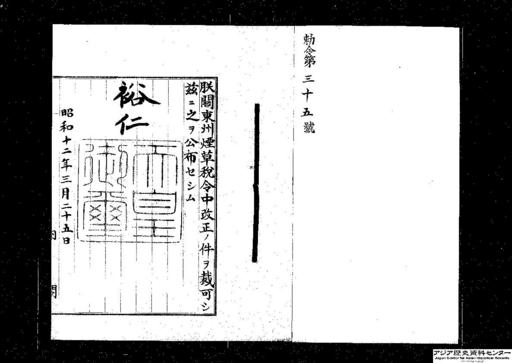 勅令第三十五號
朕關東州煙草稅令中改正ノ件ヲ裁可シ
玆ニ之ヲ公布セシム
裕仁
天皇御璽
昭和十二年三月二十五日
内閣
アジア歴史資料センター
Japan Center for Asian Historical Records